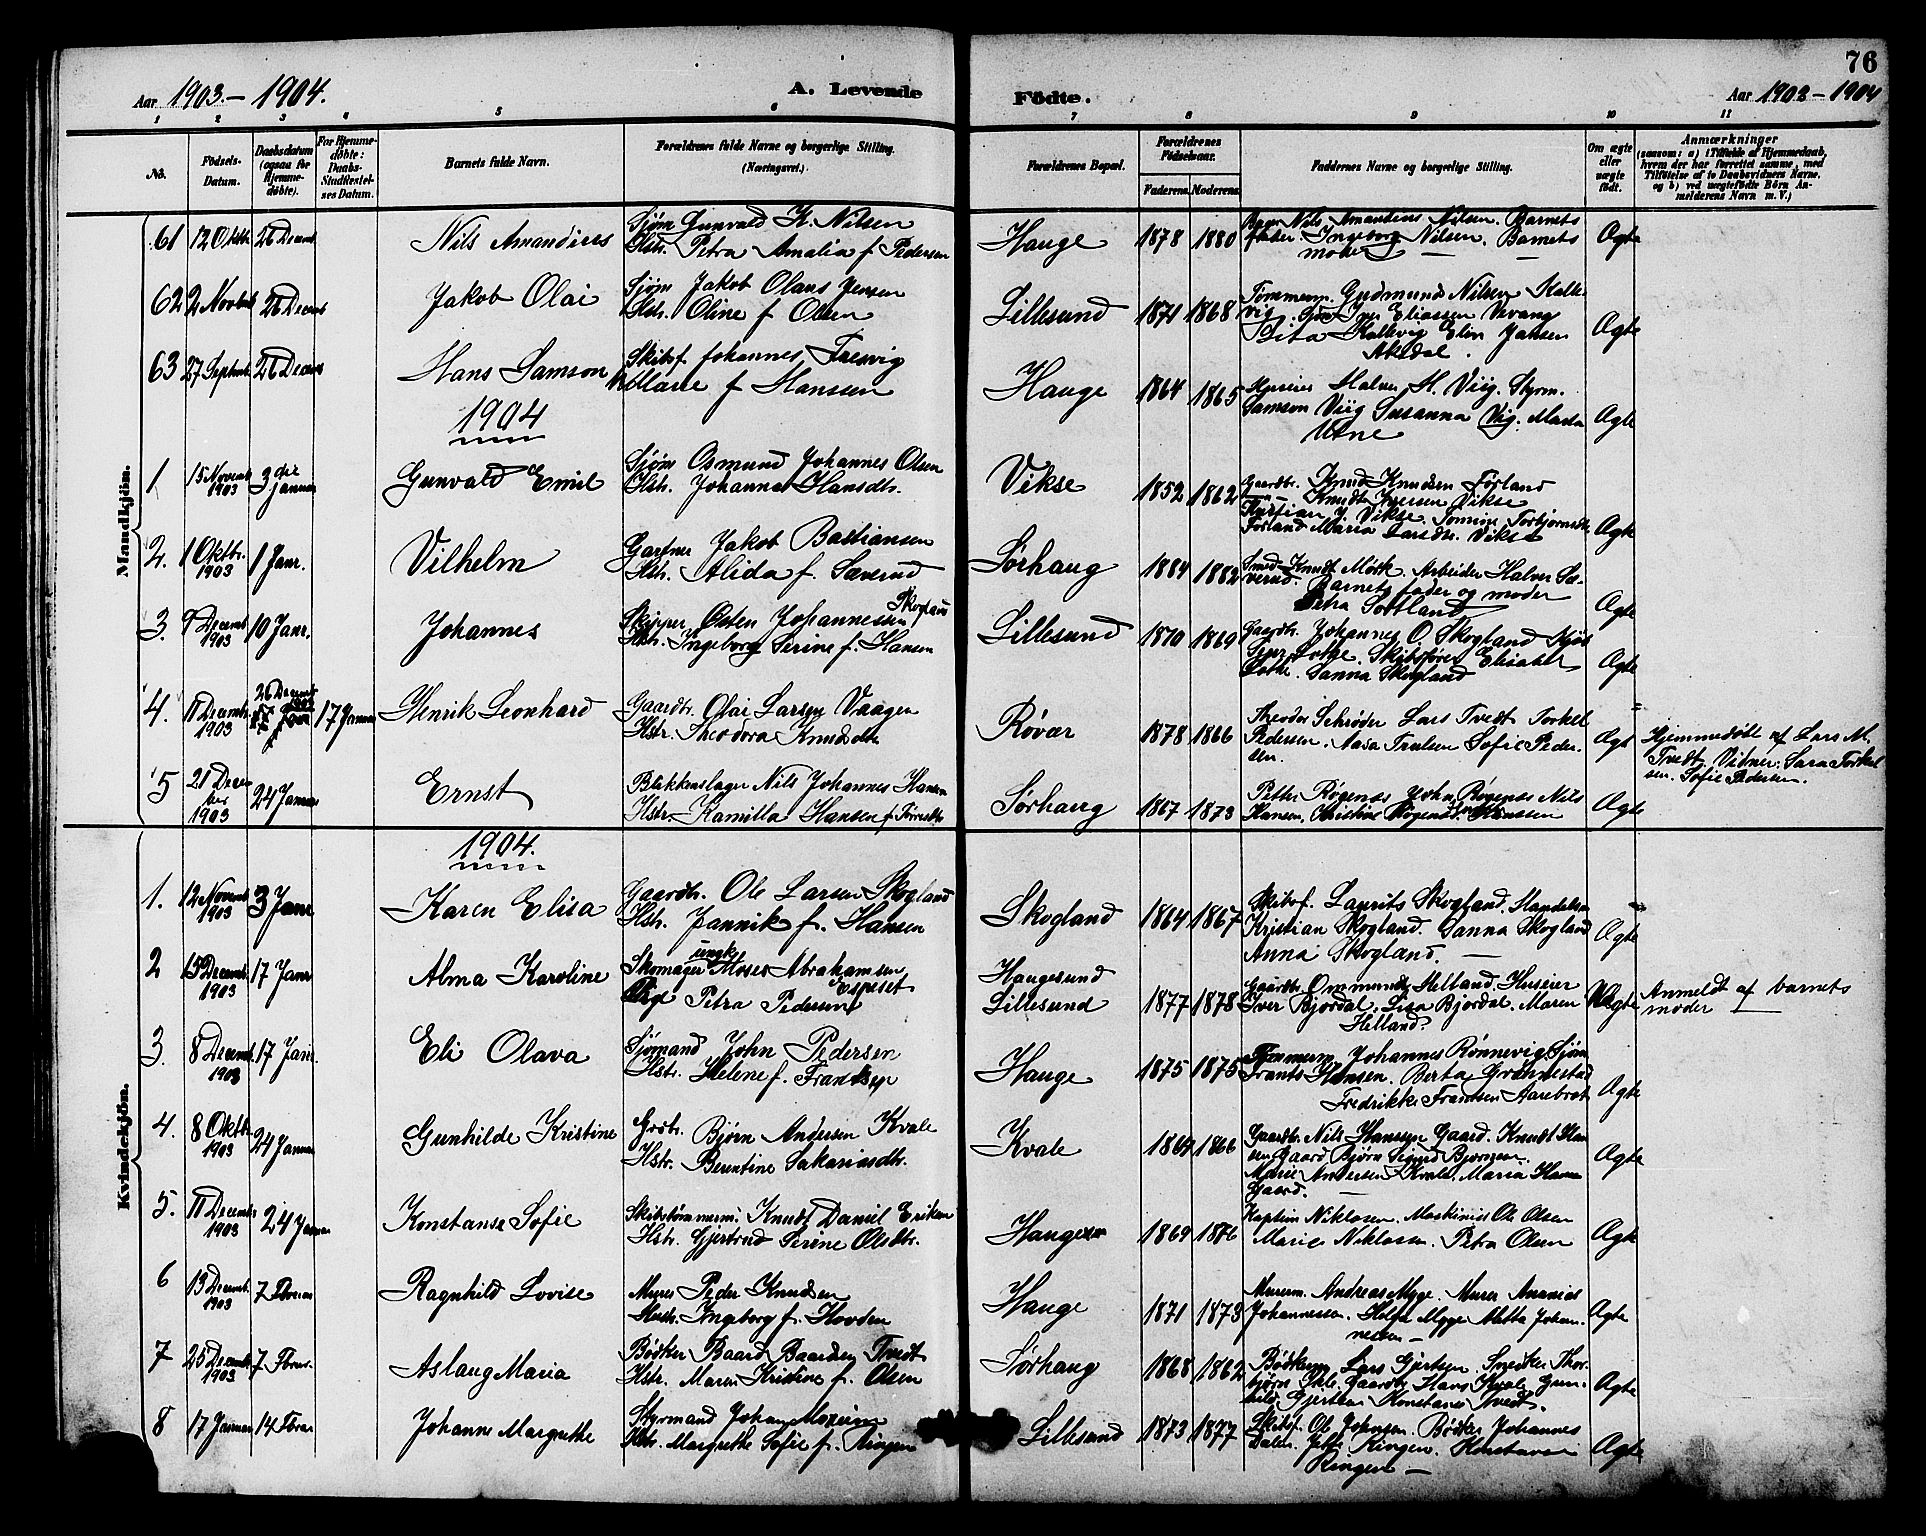 76
Aar 1903.- 1904. A. Levende Födte. Aar 1903 - 1904
1 2 3 4 5 6 7 8 9 10 11
No. Födsels-Datum. Daabsdatum (ogsaa for Hjemmedöbte). For Hjemmedöbte: Daabs-Stadfæstelses Datum. Barnets fulde Navn. Forældrenes fulde Navne og borgerlige Stilling. (Næringsvei.) Forældrenes Bopæl. Forældrenes Födselsaar. Faderens. Moderens. Faddernes Navne og borgerlige Stilling. Om ægte eller uægte födt. Anmærkninger (saasom: a) i Tilfælde af Hjemmedaab, hvem der har forrettet samme, med Tilföielse af to Daabsvidners Navne, og b) ved uægtefödte Börn Anmelderens Navn m. V.)
Mandkjön.
61 12 Oktbr 26 Decmb Nils Amandius Sjøm Gunvald K. Nilsen
Hstr. Petra Amalia f Pedersen Hauge 1878 1880 Nils Amandius Nilsen. Barnets
fader Ingeborg Nilsen. Barnets
moder Ægte
62 2 Novbr 26 Decmb Jakob Olai Sjøm Jakob Olaus Jensen
Hstr. Oline f Olsen Lillesund 1871 1868 Tømmerm. Gudmund Nilsen Kalle-
vig. Eliassen Vevang
Kallevig Elen Jansen
Akedal. Ægte
63 27 Septmb 26 Decmb Hans Samson Skibsf. Johannes Tresvig
Marie f Hansen Hauge 1864 1865 Halvor H. Viig Styrm.
Samson Viig Susanna Vig. Marta
Utne Ægte
1904
1 15 Novemb 1903 3die Januar Gunvald Emil Sjøm Osmund Johannes Olsen
Hstr. Johanna Hansdtr. Vikse 1852 1862 Gaardbr. Knud Knudsen Førland
Knudt Iversen Vikse
J Vikse. Torbjørnsdtr.
Førland Maria Larsdtr. Vikse Ægte
2. 1 Oktbr. 1903 1 Janr. Vilhelm Gartner Jakob Bastiansen
Hstr. Alida f. Sæverud Sørhaug 1884 1882 Smed Knudt Mørk. Arbeider Halvor Sæ-
verud. Barnets fader og moder
Petra Sortland Ægte
3. 9 Decemb 1903 10 Janr. Johannes Skipper Østen Johannessen Skogland
Hstr. Ingeborg Serine f. Hansen Lillesund 1870 1869 Gaardbr. Johannes O. Skogland
Lothe. Skibsfører
Lothe. Sanna Skogland Ægte
4. 11 Decemb 1903 26 Decemb 17 Januar Henrik Leonhard Gaardbr. Olai Larsen Vaagen
Hstr. Theodora Knudsdtr Røvær 1878 1866 Theodor Schrøder Lars Tvedt Torkel
Pedersen. Aasa Truelsen Sofie Peder-
sen. Ægt Hjemmedøbt af Lars M.
Tvedt. Vidner: Sara Torkel
sen. Sofie Pedersen.
5 21 December 1903 24 Januar Ernst Blikkenslager Nils Johannes Hansen
Hstr. Kamilla Hansen f Sørhaug 1867 1873 Petter Røgenæs John Røgenæs Nils
Hansen. Kristine Røgenæs. Hanssen Ægte
Kvindekjön.
1904.
1. 12 Novemb 1903 3 Janr Karen Elisa Gaardbr. Ole Larsen Skogland
Hstr. Jannik f. Hansen Skogland 1864 1867 Skibsf. Laurits Skogland. Handelsm
Kristian Skogland. Sanna Skogland
Anna Skogland. Ægte
2 15 Decemb. 1903 17 Janr Alma Karoline Skomager ungk. Moses Abrahamsen
Pige Petra Pedersen Espeset Haugesund
Lillesund 1877 1878 Gaardbr. Ommund Helland. Huseier
Iver Bjordal. Lisa Bjordal. Maren
Helland. Uægte Anmeldt af barnets
moder
3. 8 Decemb. 1903 17 Janr. Eli Olava Sjømand John Pedersen
Hstr. Helene f. Frantsen Hauge 1875 1875 Tømmerm Johannes Rønnevig Sjøm
Frants Hansen. Berta Grønnestad
Fredrikke Frantsen Aarebrot Ægte
4. 8 Oktbr 1903 24 Januar Gunhilde Kristine Grdbr. Bjørn Andersen Kvale
Hstr. Berentine Sakariasdtr. Kvale 1866 Gaardbr. Nils Hanssen Gaard. Knudt Han
sen Gaard Bjørn Sigurd Bjørnsen
Marie Andersen Kvale. Maria Hansen
Gaard. Ægte
5. 11 Decembr 1903 24 Januar Konstanse Sofie Skibstømmerm. Knudt Daniel Eriksen
Hstr. Gjertrud Serine Olsdtr. 1869 1876 Kaptein Niklasen. Maskinist Ole Olsen
Marie Niklasen. Petra Olsen Ægte
6 13 Decemb. 1903 7 Febru Ragnhild Lovise Murer Peder Knudsen
Hustr. Ingeborg f. Hovden Hauge 1871 1873 Murerm. Andreas Myge. Murer Ananias
Johannessen. Helga Mygge Metta Johan-
nessen Ægte
7 25 Decemb 1903 7 Februr. Aslaug Maria Bødker Baard Baardsen Tvedt
Hstr. Maren Kristine f. Olsen Sørhaug 1868 1862 Bødkerm Lars Gjertsen Snedker Thor
bjørn Gaardbr Hans Kvale Gun-
hild Gjertsen Konstanse Tvedt. Ægte
8 17 Januar 14 Februar Johanne Margrethe Styrmand Johan
Hstr. Margrethe Sofie f. Ringen Lillesund 1873 1877 Skibsf. Ole Johnsen. Bødker Johannes
Dalen. Ringen.
Ringen Ægte